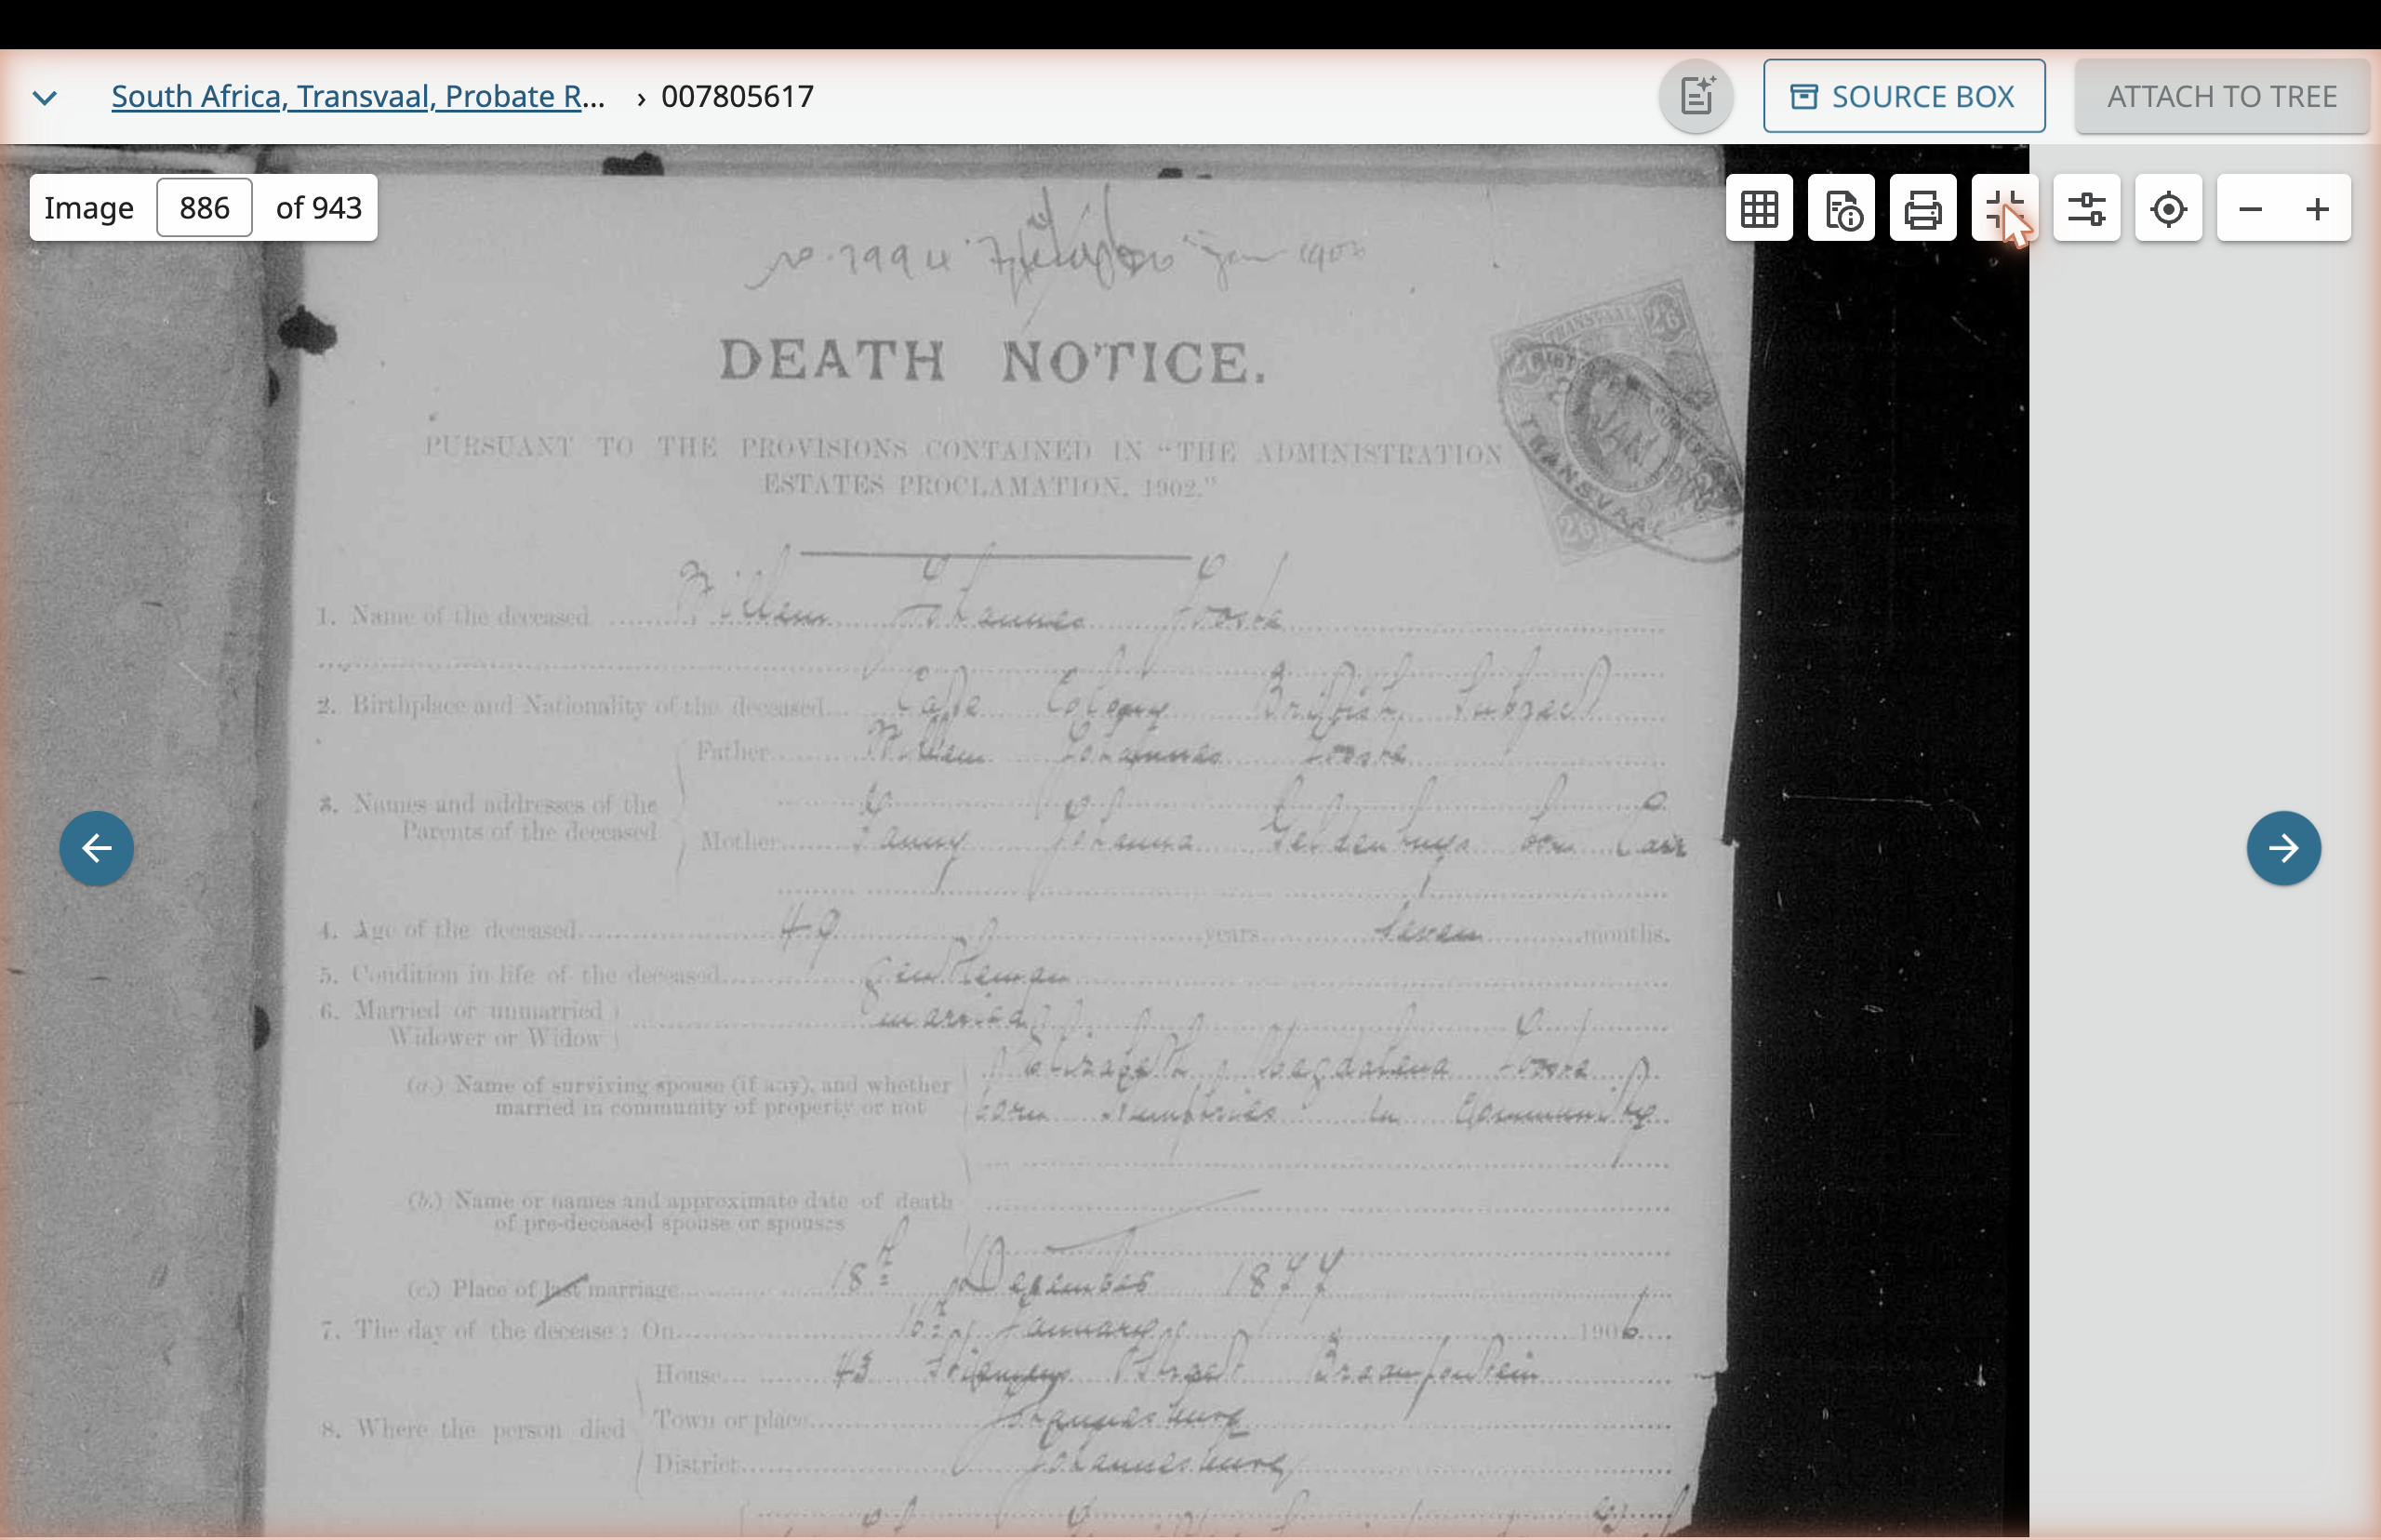 South Africa, Transvaal, Probate R... › 007805617
SOURCE BOX
ATTACH TO TREE
Image 886 of 943
DEATH NOTICE.
TRANSVAAL
PURSUANT TO THE PROVISIONS CONTAINED IN "THE ADMINISTRATION
ESTATES PROCLAMATION, 1902."
1. Name of the deceased Willem Johannes Jooste
2. Birthplace and Nationality of the deceased Cape Colony British Subject
Father Willem Johannes Jooste
3. Names and addresses of the
Parents of the deceased
Mother Fanny Johanna Geldenhuys born
4. Age of the deceased 49 years Seven months.
5. Condition in life of the deceased Gentleman
6. Married or unmarried married
Widower or Widow
(a.) Name of surviving spouse (if any), and whether Elizabeth Magdalena Jooste
married in community of property or not born Humphries in Community
(b.) Name or names and approximate date of death
of pre-deceased spouse or spouses
(c.) Place of last marriage 18th December 1877
7. The day of the decease: On January 1906
House 43 Street Braamfontein
8. Where the person died
Town or place Johannesburg
District Johannesburg